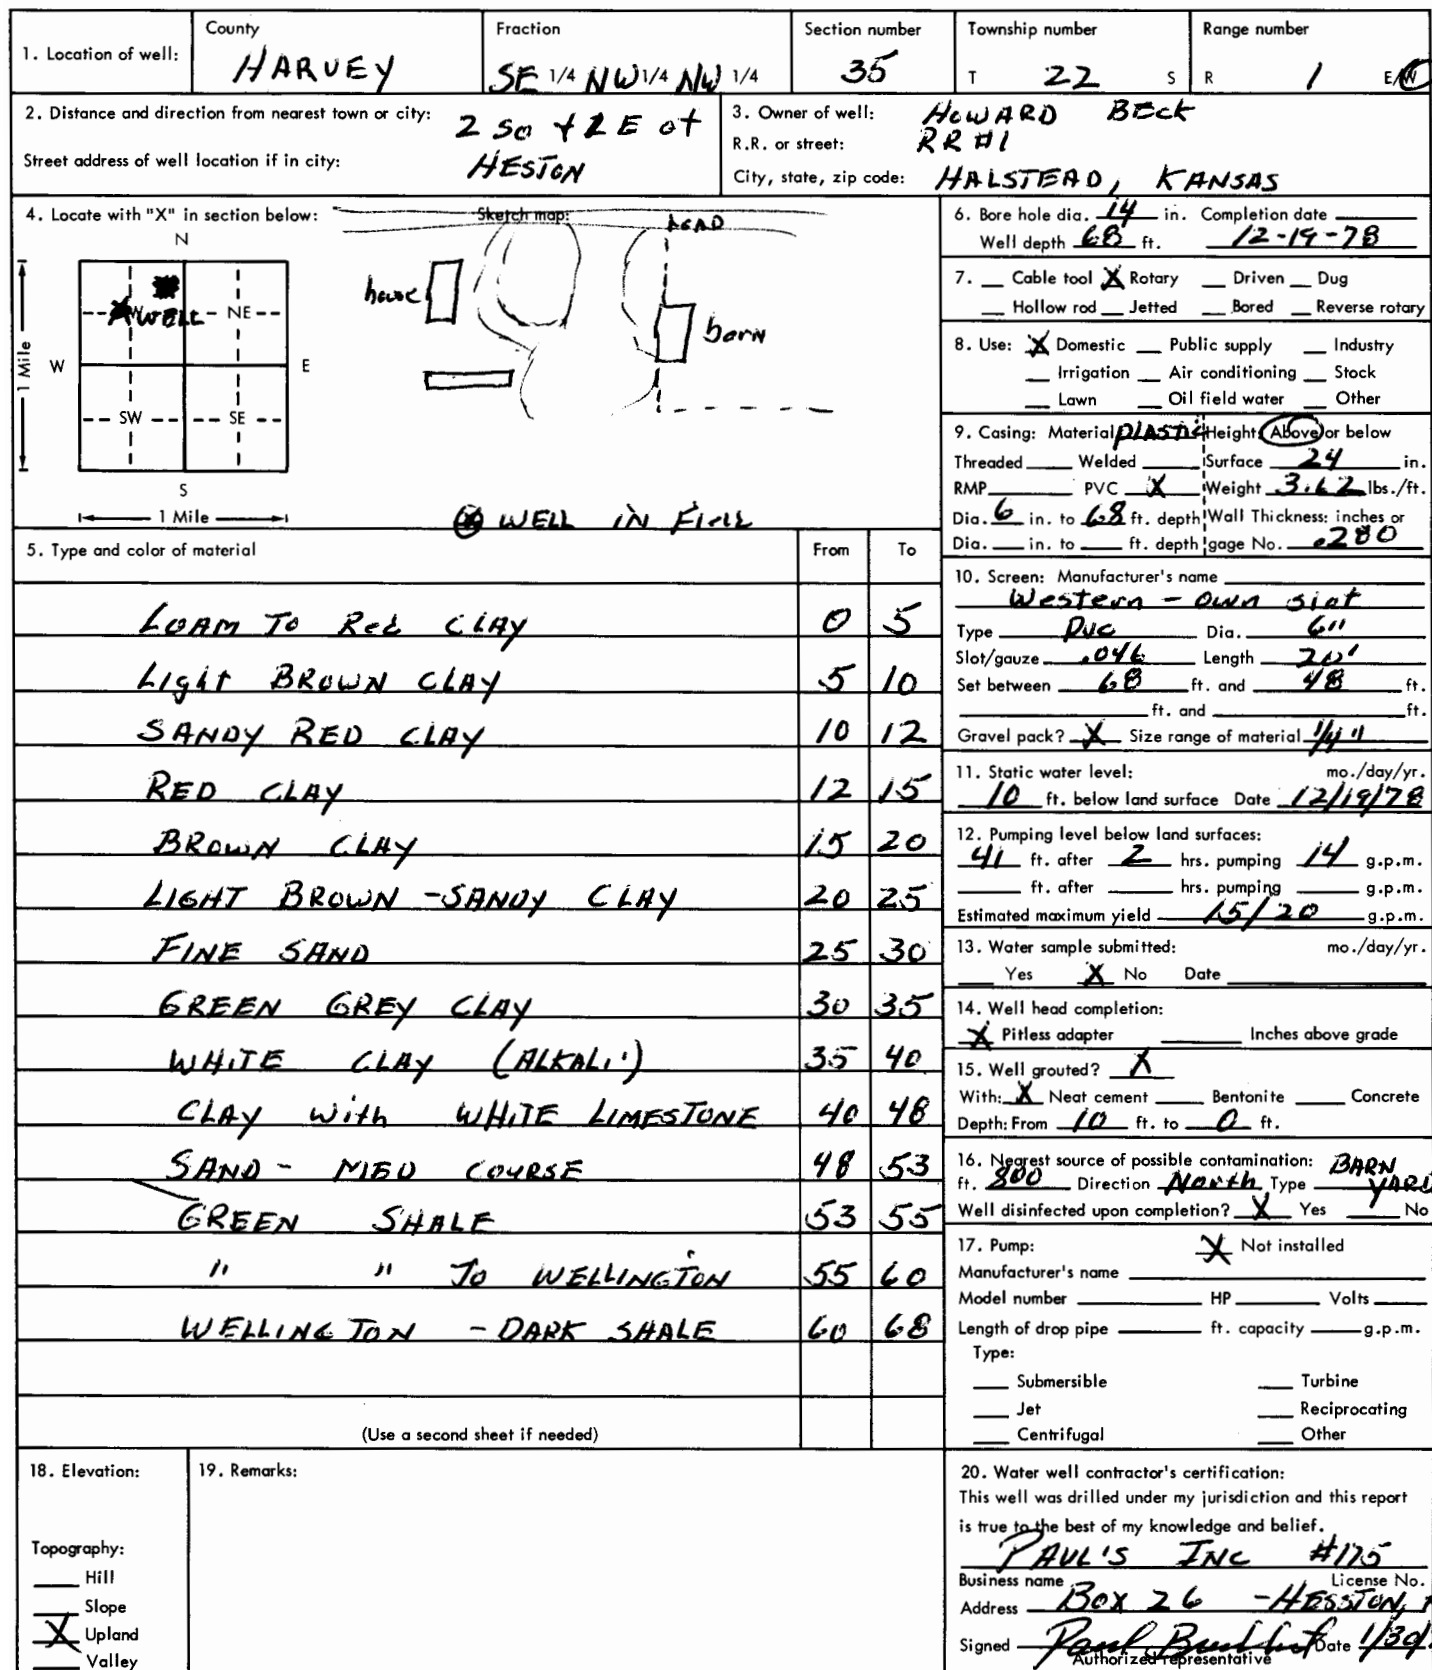 1. Location of well: County HARVEY Fraction SE 1/4 NW 1/4 NW 1/4 Section number 35 Township number T 22 S Range number R 1 E/W
2. Distance and direction from nearest town or city: 2 So + 2 E of
Street address of well location if in city: HESTON
3. Owner of well: HOWARD BECK
R.R. or street: RR #1
City, state, zip code: HALSTEAD, KANSAS
4. Locate with "X" in section below: Sketch map:
ROAD
N
house
barn
X WELL NE
1 Mile W E
SW SE
S
1 Mile
WELL IN FIELD
5. Type and color of material From To
LOAM TO Red CLAY 0 5
Light BROWN CLAY 5 10
SANDY RED CLAY 10 12
RED CLAY 12 15
BROWN CLAY 15 20
LIGHT BROWN - SANDY CLAY 20 25
FINE SAND 25 30
GREEN GREY CLAY 30 35
WHITE CLAY (ALKALI) 35 40
CLAY With WHITE LIMESTONE 40 48
SAND - MED COURSE 48 53
GREEN SHALE 53 55
" " To WELLINGTON 55 60
WELLINGTON - DARK SHALE 60 68
(Use a second sheet if needed)
6. Bore hole dia. 14 in. Completion date
Well depth 68 ft. 12-19-78
7. Cable tool X Rotary Driven Dug
Hollow rod Jetted Bored Reverse rotary
8. Use: X Domestic Public supply Industry
Irrigation Air conditioning Stock
Lawn Oil field water Other
9. Casing: Material PLASTIC Height: Above or below
Threaded Welded Surface 24 in.
RMP PVC X Weight 3.62 lbs./ft.
Dia. 6 in. to 68 ft. depth Wall Thickness: inches or
Dia. in. to ft. depth gage No. .280
10. Screen: Manufacturer's name
Western - own slot
Type PVC Dia. 6"
Slot/gauze .046 Length 20'
Set between 68 ft. and 48 ft.
ft. and ft.
Gravel pack? X Size range of material 1/4"
11. Static water level: mo./day/yr.
10 ft. below land surface Date 12/19/78
12. Pumping level below land surfaces:
41 ft. after 2 hrs. pumping 14 g.p.m.
ft. after hrs. pumping g.p.m.
Estimated maximum yield 15/20 g.p.m.
13. Water sample submitted: mo./day/yr.
Yes X No Date
14. Well head completion:
X Pitless adapter Inches above grade
15. Well grouted? X
With: X Neat cement Bentonite Concrete
Depth: From 10 ft. to 0 ft.
16. Nearest source of possible contamination: BARN
ft. 800 Direction North Type YARD
Well disinfected upon completion? X Yes No
17. Pump: X Not installed
Manufacturer's name
Model number HP Volts
Length of drop pipe ft. capacity g.p.m.
Type:
Submersible Turbine
Jet Reciprocating
Centrifugal Other
18. Elevation:
Topography:
Hill
Slope
X Upland
Valley
19. Remarks:
20. Water well contractor's certification:
This well was drilled under my jurisdiction and this report
is true to the best of my knowledge and belief.
PAUL'S INC #175
Business name License No.
Address Box 26 - HESSTON,
Signed Paul Date 1/30/
Authorized representative